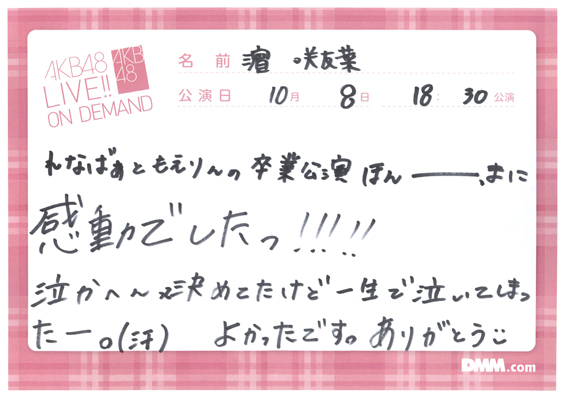 AKB48
LIVE!!
ON DEMAND
AKB
48
名前 濵 咲友菜
公演日 10月 8日 18: 30公演
れなばぁともえりんの卒業公演ほんーーまに
感動でしたっ!!!!!
泣かへんって決めてたけど一生で泣いてしまっ
たー。(汗) よかったです。ありがとう
DMM.com